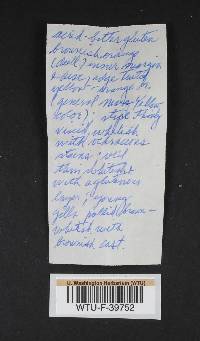 acrid - bitter gluten
brownish orange
(dull) inner margin
& disc, edge tinted
yellow - orange or
(general Mars Yellow
color); stipe
viscid, whitish
with ochraceous
stains; veil
thin, whitish
with a glutinous
layer; young
gills pallid brown -
whitish with
brownish cast.
U. Washington Herbarium (WTU)
WTU-F-39752